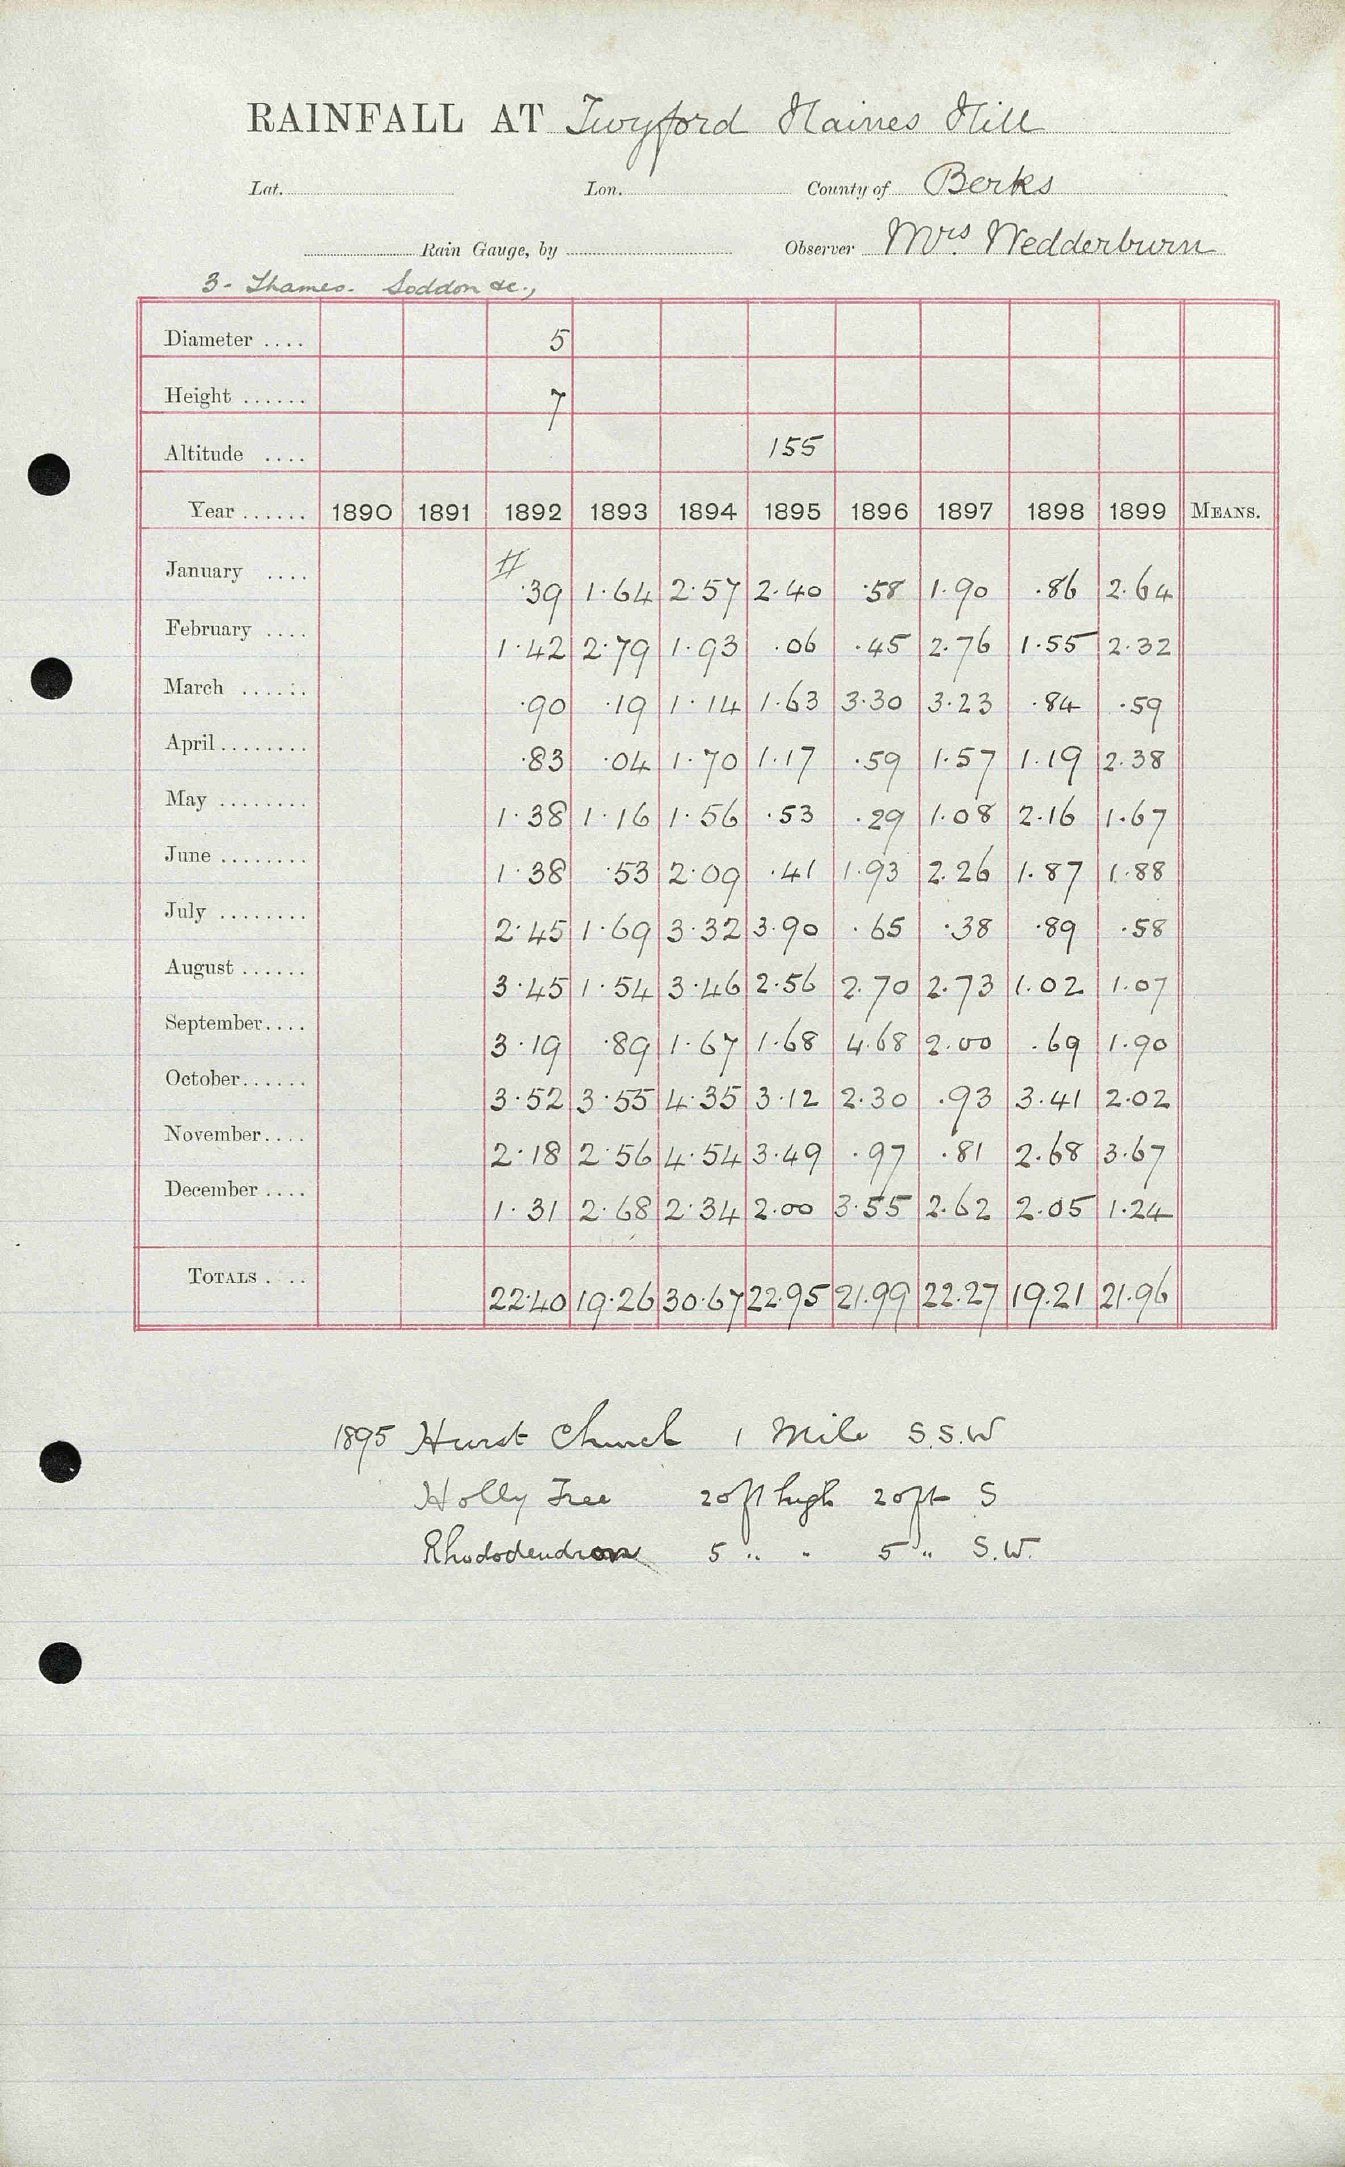 RAINFALL AT Twyford Haines Hill
Lat. Lon. County of Berks
Rain Gauge, by Observer Mrs. Wedderburn
3 - Thames. Loddon &c.,
Diameter .... 5
Height ...... 7
Altitude .... 155
Year ...... 1890 1891 1892 1893 1894 1895 1896 1897 1898 1899 MEANS.
January .... # ·39 1·64 2·57 2·40 ·58 1·90 ·86 2·64
February .... 1·42 2·79 1·93 ·06 ·45 2·76 1·55 2·32
March ...... ·90 ·19 1·14 1·63 3·30 3·23 ·84 ·59
April ........ ·83 ·04 1·70 1·17 ·59 1·57 1·19 2·38
May ........ 1·38 1·16 1·56 ·53 ·29 1·08 2·16 1·67
June ........ 1·38 ·53 2·09 ·41 1·93 2·26 1·87 1·88
July ........ 2·45 1·69 3·32 3·90 ·65 ·38 ·89 ·58
August ...... 3·45 1·54 3·46 2·56 2·70 2·73 1·02 1·07
September.... 3·19 ·89 1·67 1·68 4·68 2·00 ·69 1·90
October...... 3·52 3·55 4·35 3·12 2·30 ·93 3·41 2·02
November.... 2·18 2·56 4·54 3·49 ·97 ·81 2·68 3·67
December .... 1·31 2·68 2·34 2·00 3·55 2·62 2·05 1·24
TOTALS .... 22·40 19·26 30·67 22·95 21·99 22·27 19·21 21·96
1895 Hurst Church 1 Mile S.S.W
Holly Tree 20ft high 20ft S
Rhododendron 5 " " 5 " S.W.